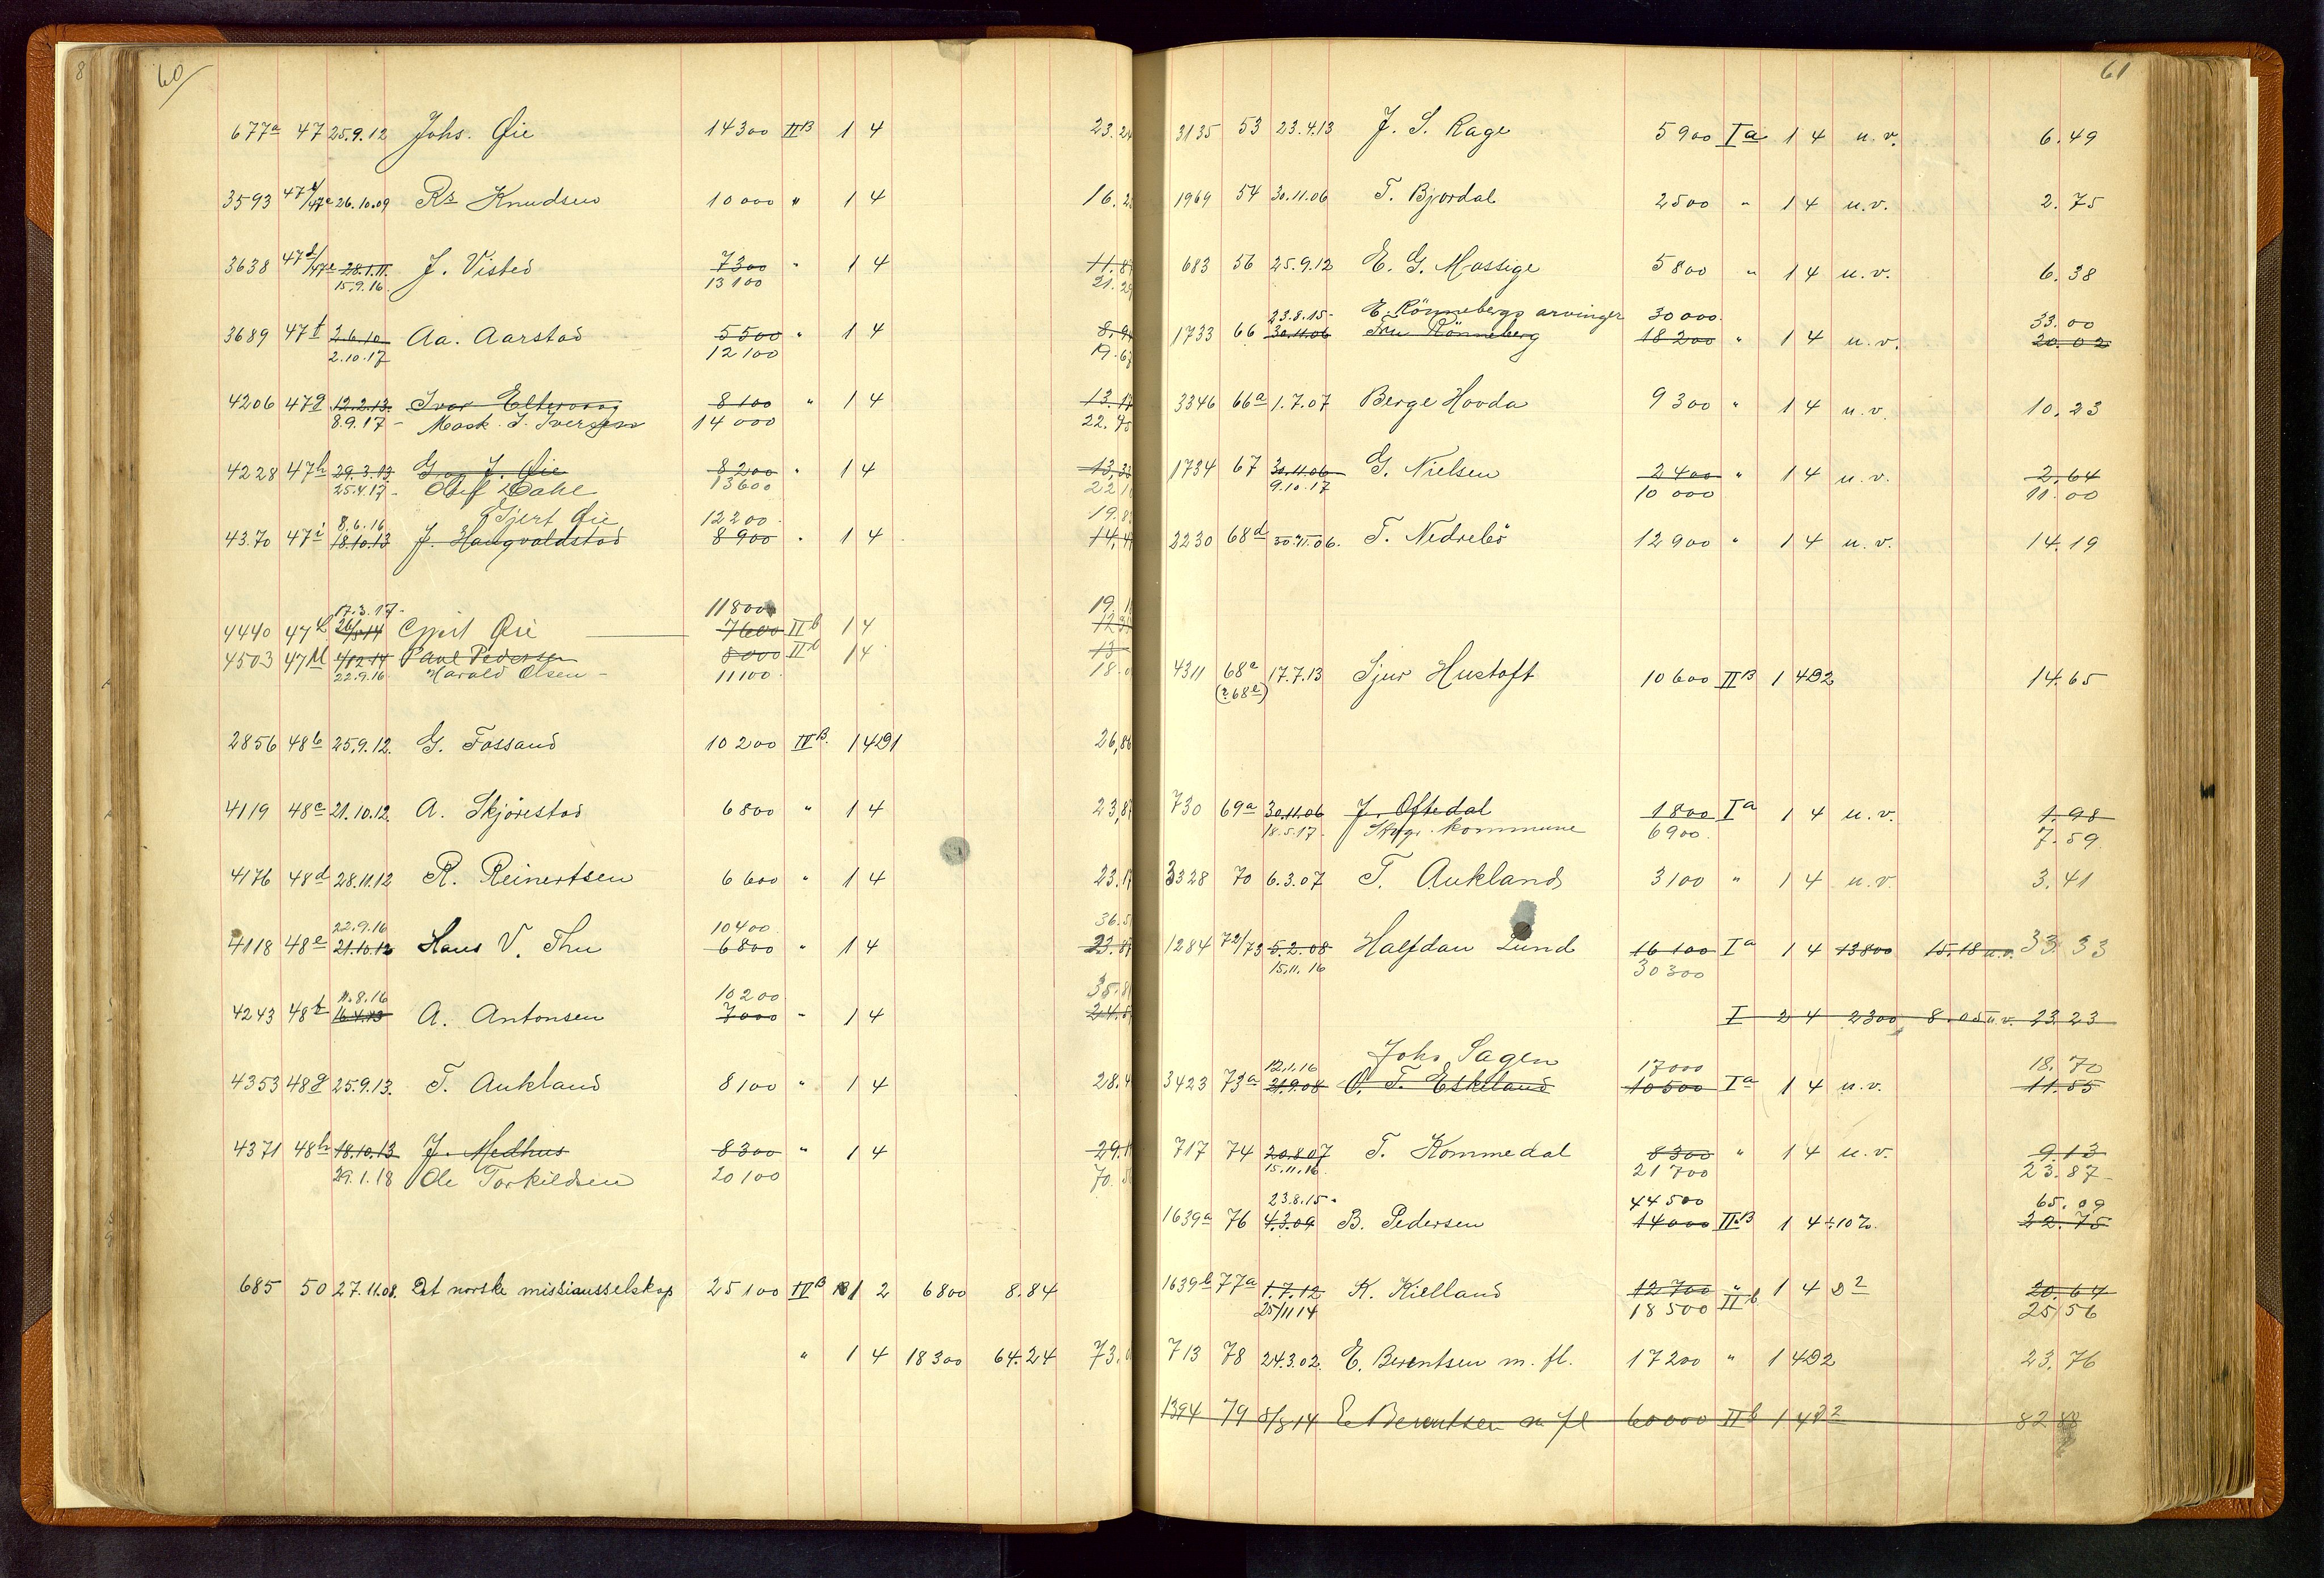 60
677a 47 25.9.12 Johs. Øie 14300 IIB 1 4 23.2
3593 47 26.10.09 Rs Knudsen 10000 " 1 4 16.2
3638 47d/47e 28.1.11. J. Visted 7300 " 1 4 11.8
15.9.16. 13100 21.2
3689 47f 2.6.10 Aa. Aarstad 5500 " 1 4 8.9
2.10.17 12100 19.6
4206 47g 12.2.13. Ivar Eltervaag 8100 " 1 4 13.1
8.9.17 - Mask. J. Iversen 14000 22.7
4228 47h 29.3.13 G. og J. Øie 8200 " 1 4 13,3
25.4.17 - Olaf Dahl 13600 22.1
8.6.16 Gjert Øie 12200 19.8
4370 47i 18.10.13 J. Haugvaldstad 8900 " 1 4 14,4
17.3.17- 11800 19.1
4440 47L 26/5 14 Gjert Øie 7600 IIb 1 4
4503 47M 4/12 14 Paul Pedersen 8000 IIb 1 4 13
22.9.16 Harald Olsen - 11100 18.0
2856 48b 25.9.12. G. Fossand 10200 IVB. 1 4D1 26,8
4119 48c 21.10.12. A. Skjørestad 6800 " 1 4 23,8
4176 48d 28.11.12 R. Reinertsen 6600 " 1 4 23.1
22.9.16 10400 36.5
4118 48e 21.10.12 Hans V. Thu 6800 " 1 4 23.8
11.8.16 10200 35.8
4243 48f 16.4.13 A. Antonsen 7000 " 1 4 24.5
4353 48g 25.9.13. T. Aukland 8100 " 1 4 28.4
4371 48h 18.10.13 J. Medhus 8300 " 1 4 29.1
29.1.18 Ole Torkildsen 20100 70.5
685 50 27.11.08. Det norske missionsselskap 25100 IVB 1 2 6800 8.84
" 1 4 18300 64.24 73.0
61
3135 53 23.4.13 J. S. Rage 5900 Ia 1 4 u.v. 6.49
1969 54 30.11.06 T. Bjordal 2500 " 1 4 u.v. 2.75
683 56 25.9.12 E. G. Mossige 5800 " 1 4 u.v. 6.38
23.8.15- E. Rönnebergs arvinger 30000. 33.00
1733 66 30.11.06 Fru Rönneberg 18200 " 1 4 u.v. 20.02
3346 66a 1.7.07 Berge Hovda 9300 " 1 4 u.v. 10.23
1734 67 30.11.06 G. Nielsen 2400 " 1 4 u.v. 2.64
9.10.17 10000 11.00
2230 68d 30.11.06. T. Nedrebö 12900 " 1 4 u.v. 14.19
4311 68a 17.7.13 Sjur Hustoft 10600 IIB 1 4D2 14.65
(?68e)
730 69a 30.11.06 J. Oftedal 1800 Ia 1 4 u.v. 1.98
18.5.17- kommune 6900. 7.59
3328 70 6.3.07 T. Aukland 3100 " 1 4 u.v. 3.41
1284 72/73 5.2.08 Halfdan Lund 16100 Ia 1 4 13800 15.18 u.v. 33.33
15.11.16 30300
I 2 4 2300 8.05 u.v. 23.23
12.1.16 Johs Sagen 17000 18.70
3423 73a 21.9.08 O. T. Eskeland 10500 Ia 1 4 u.v. 11.55
717 74 20.8.07 T. Kommedal 8300 " 1 4 u.v. 9.13
15.11.16 21700 23.87
23.8.15- 44500 65.09
1639a 76 4.3.09 B. Pedersen 14000 IIB 1 4÷10% 22.75
1639b 77a 1.7.12 K. Kielland 12700 " 1 4 D2 20.64
25/11 14 18500 IIb 25.56
713 78 24.3.02. E. Berentsen m. fl. 17200 " 1 4D2 23.76
1394 79 5/8 14 E Berentsen m fl 60000 IIb 1 4D2 82